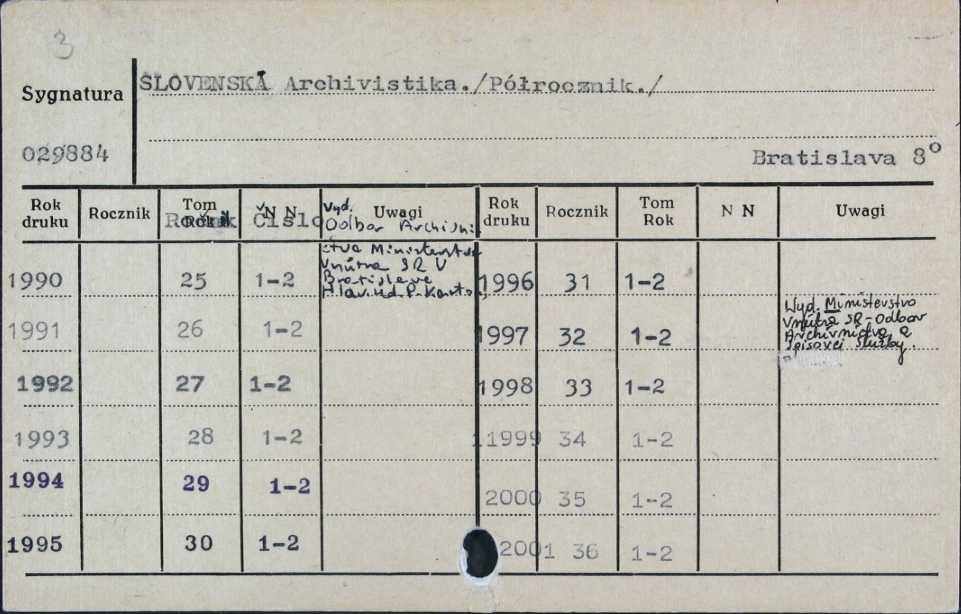 3
Sygnatura SLOVENSKÁ Archivistika./Półrocznik./
029884 Bratislava 8°
Rok druku Rocznik Tom Rok N N Uwagi Rok druku Rocznik Tom Rok N N Uwagi
Ročník Číslo
Vyd.
Odbor Archivni-
ctva Ministerstva
Vnútra SR V
Bratislave
Hlav. red. P. Kartous
1990 25 1-2 1996 31 1-2
Wyd. Ministerstvo
Vnútra SR - Odbor
Archívnictva a
spisovej služby.
1991 26 1-2 1997 32 1-2
1992 27 1-2 1998 33 1-2
1993 28 1-2 11999 34 1-2
1994 29 1-2 2000 35 1-2
1995 30 1-2 2001 36 1-2